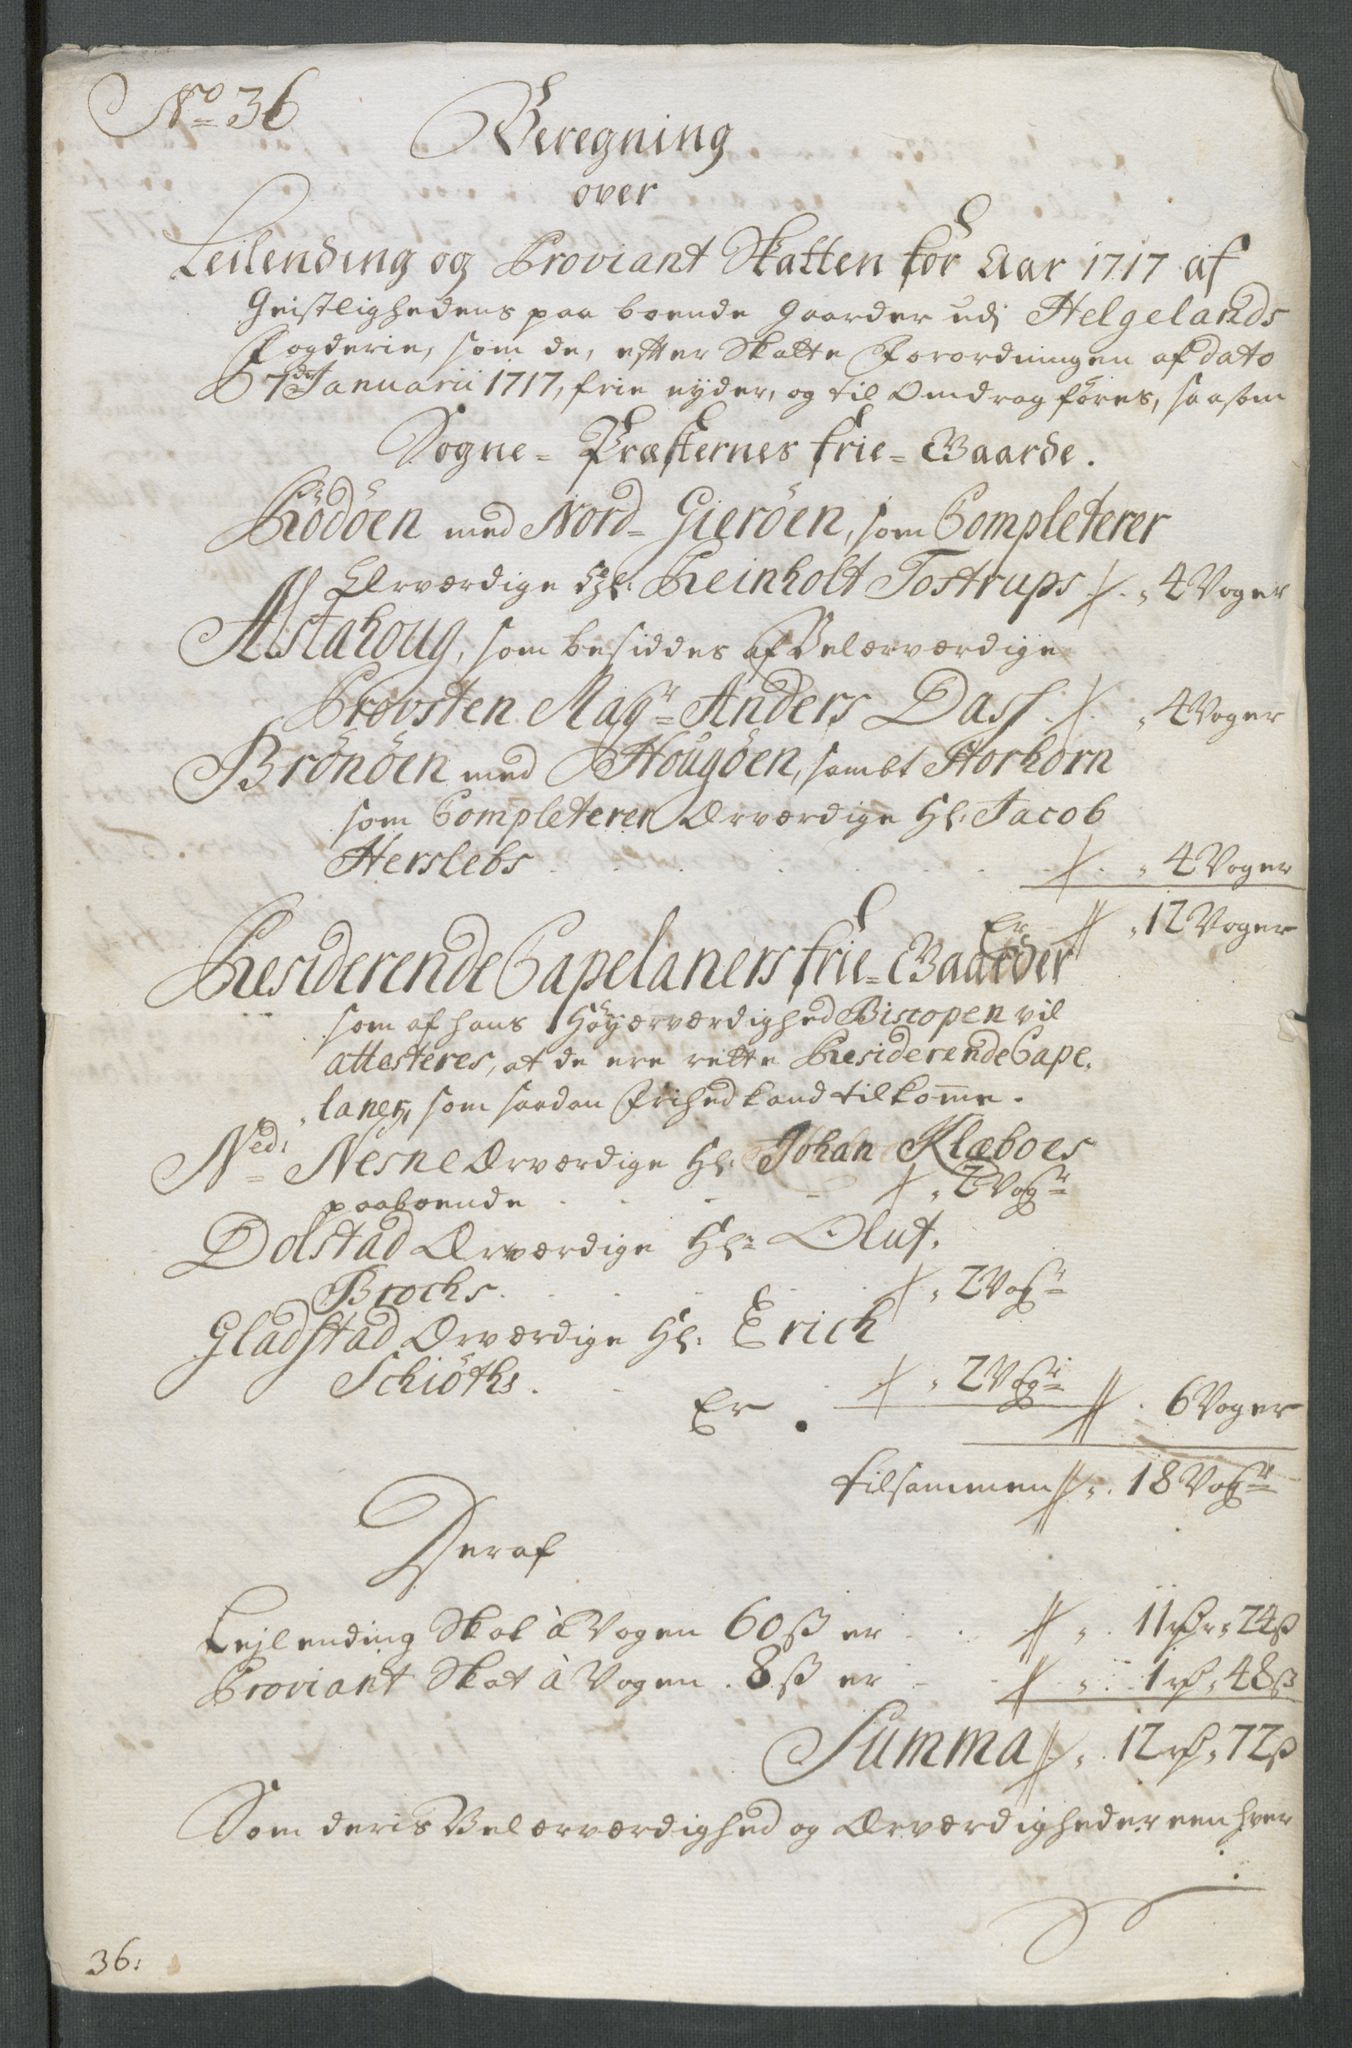 No 36
Beregning
over
Leilending og Proviant Skatten for Aar 1717 af
Geistlighedens paa boende Gaarder udj Helgelands
Fogderie, som de, efter Skatte Forordningen af dato
7de Januarii 1717, frie nyder, og til Omdrag föres, saasom
Sogne-Præsternes frie-Gaarde.
Rödöen med Nord-Gieröen, som Completerer
Ærværdige Hr: Reinholt Tostrups 4 Voger
Alstahoug, som besiddes af Velærværdige
Provsten Magr Anders Dass 4 Voger
Brönöen med Hougöen, sambt Storhorn
som Completerer Ærværdige Hr: Jacob
Herslebs 4 Voger
Er 12 Voger
Residerende Capelaners frie-Gaarder
som af hans Höyærværdighed Biscopen vil
attesteres, at de ere rette Residerende Cape,
laner, som saadan Frihed kand tilkom̅e.
Ned: Nesne Ærværdige Hr: Johan Klæboes
paaboende 2 Vogr
Dolstad Ærværdige Hr Oluf
Brochs 2 Vogr
Gladstad Ærværdige Hr: Erich
Schiöths 2 Vogr
Er 6 Voger
tilsammen 18 Vogr
Deraf
Lejlending Skat à Vogen 60 ß er 11 rdr 24 ß
Proviant Skat à Vogen 8 ß er 1 rd 48 ß
Summa 12 rd 72 ß
Som deris Velærværdighed og Ærværdigheder een hver
36: